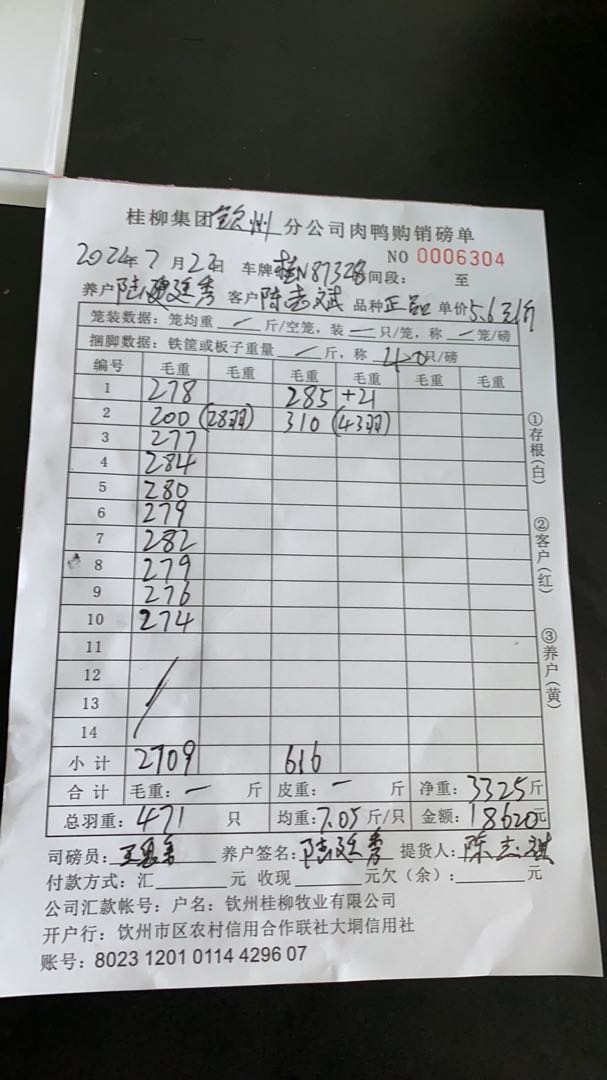 桂柳集团钦州分公司肉鸭购销磅单
NO 0006304
2024年7月22日 车牌桂N87328 时间段： 至
养户 陆廷秀 客户 陈志斌 品种 正品 单价 5.6元/斤
笼装数据：笼均重 / 斤/空笼，装 一 只/笼，称 / 笼/磅
捆脚数据：铁筐或板子重量 / 斤，称 40 只/磅
编号 毛重 毛重 毛重 毛重 毛重 毛重
1 278 285 +21
2 200 (28羽) 310 (43羽)
3 277
4 284
5 280
6 279
7 282
8 279
9 276
10 274
11
12
13
14
小计 2709 616
合计 毛重：一 斤 皮重：一 斤 净重：3325斤
总羽重：471 只 均重：7.05斤/只 金额：18620元
司磅员： 养户签名：陆廷秀 提货人：陈志斌
付款方式：汇 元 收现 元欠（余）： 元
公司汇款帐号：户名：钦州桂柳牧业有限公司
开户行：饮州市区农村信用合作联社大垌信用社
账号：8023 1201 0114 4296 07
①存根（白）
②客户（红）
③养户（黄）